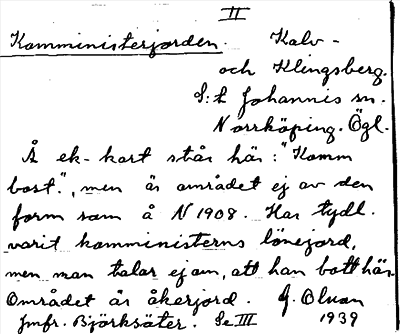 II
Komministerjorden. Kalv-
och Klingsberg.
S:t Johannis sn.
Norrköping. Ögl.
Å ek-kart står här: "Komm
bost.", men är området ej av den
form som å N 1908. Har tydl.
varit komministerns lönejord,
men man talar ej om, att han bott här.
Området är åkerjord. G. Olson
Jmfr. Björksäter. Se III 1939